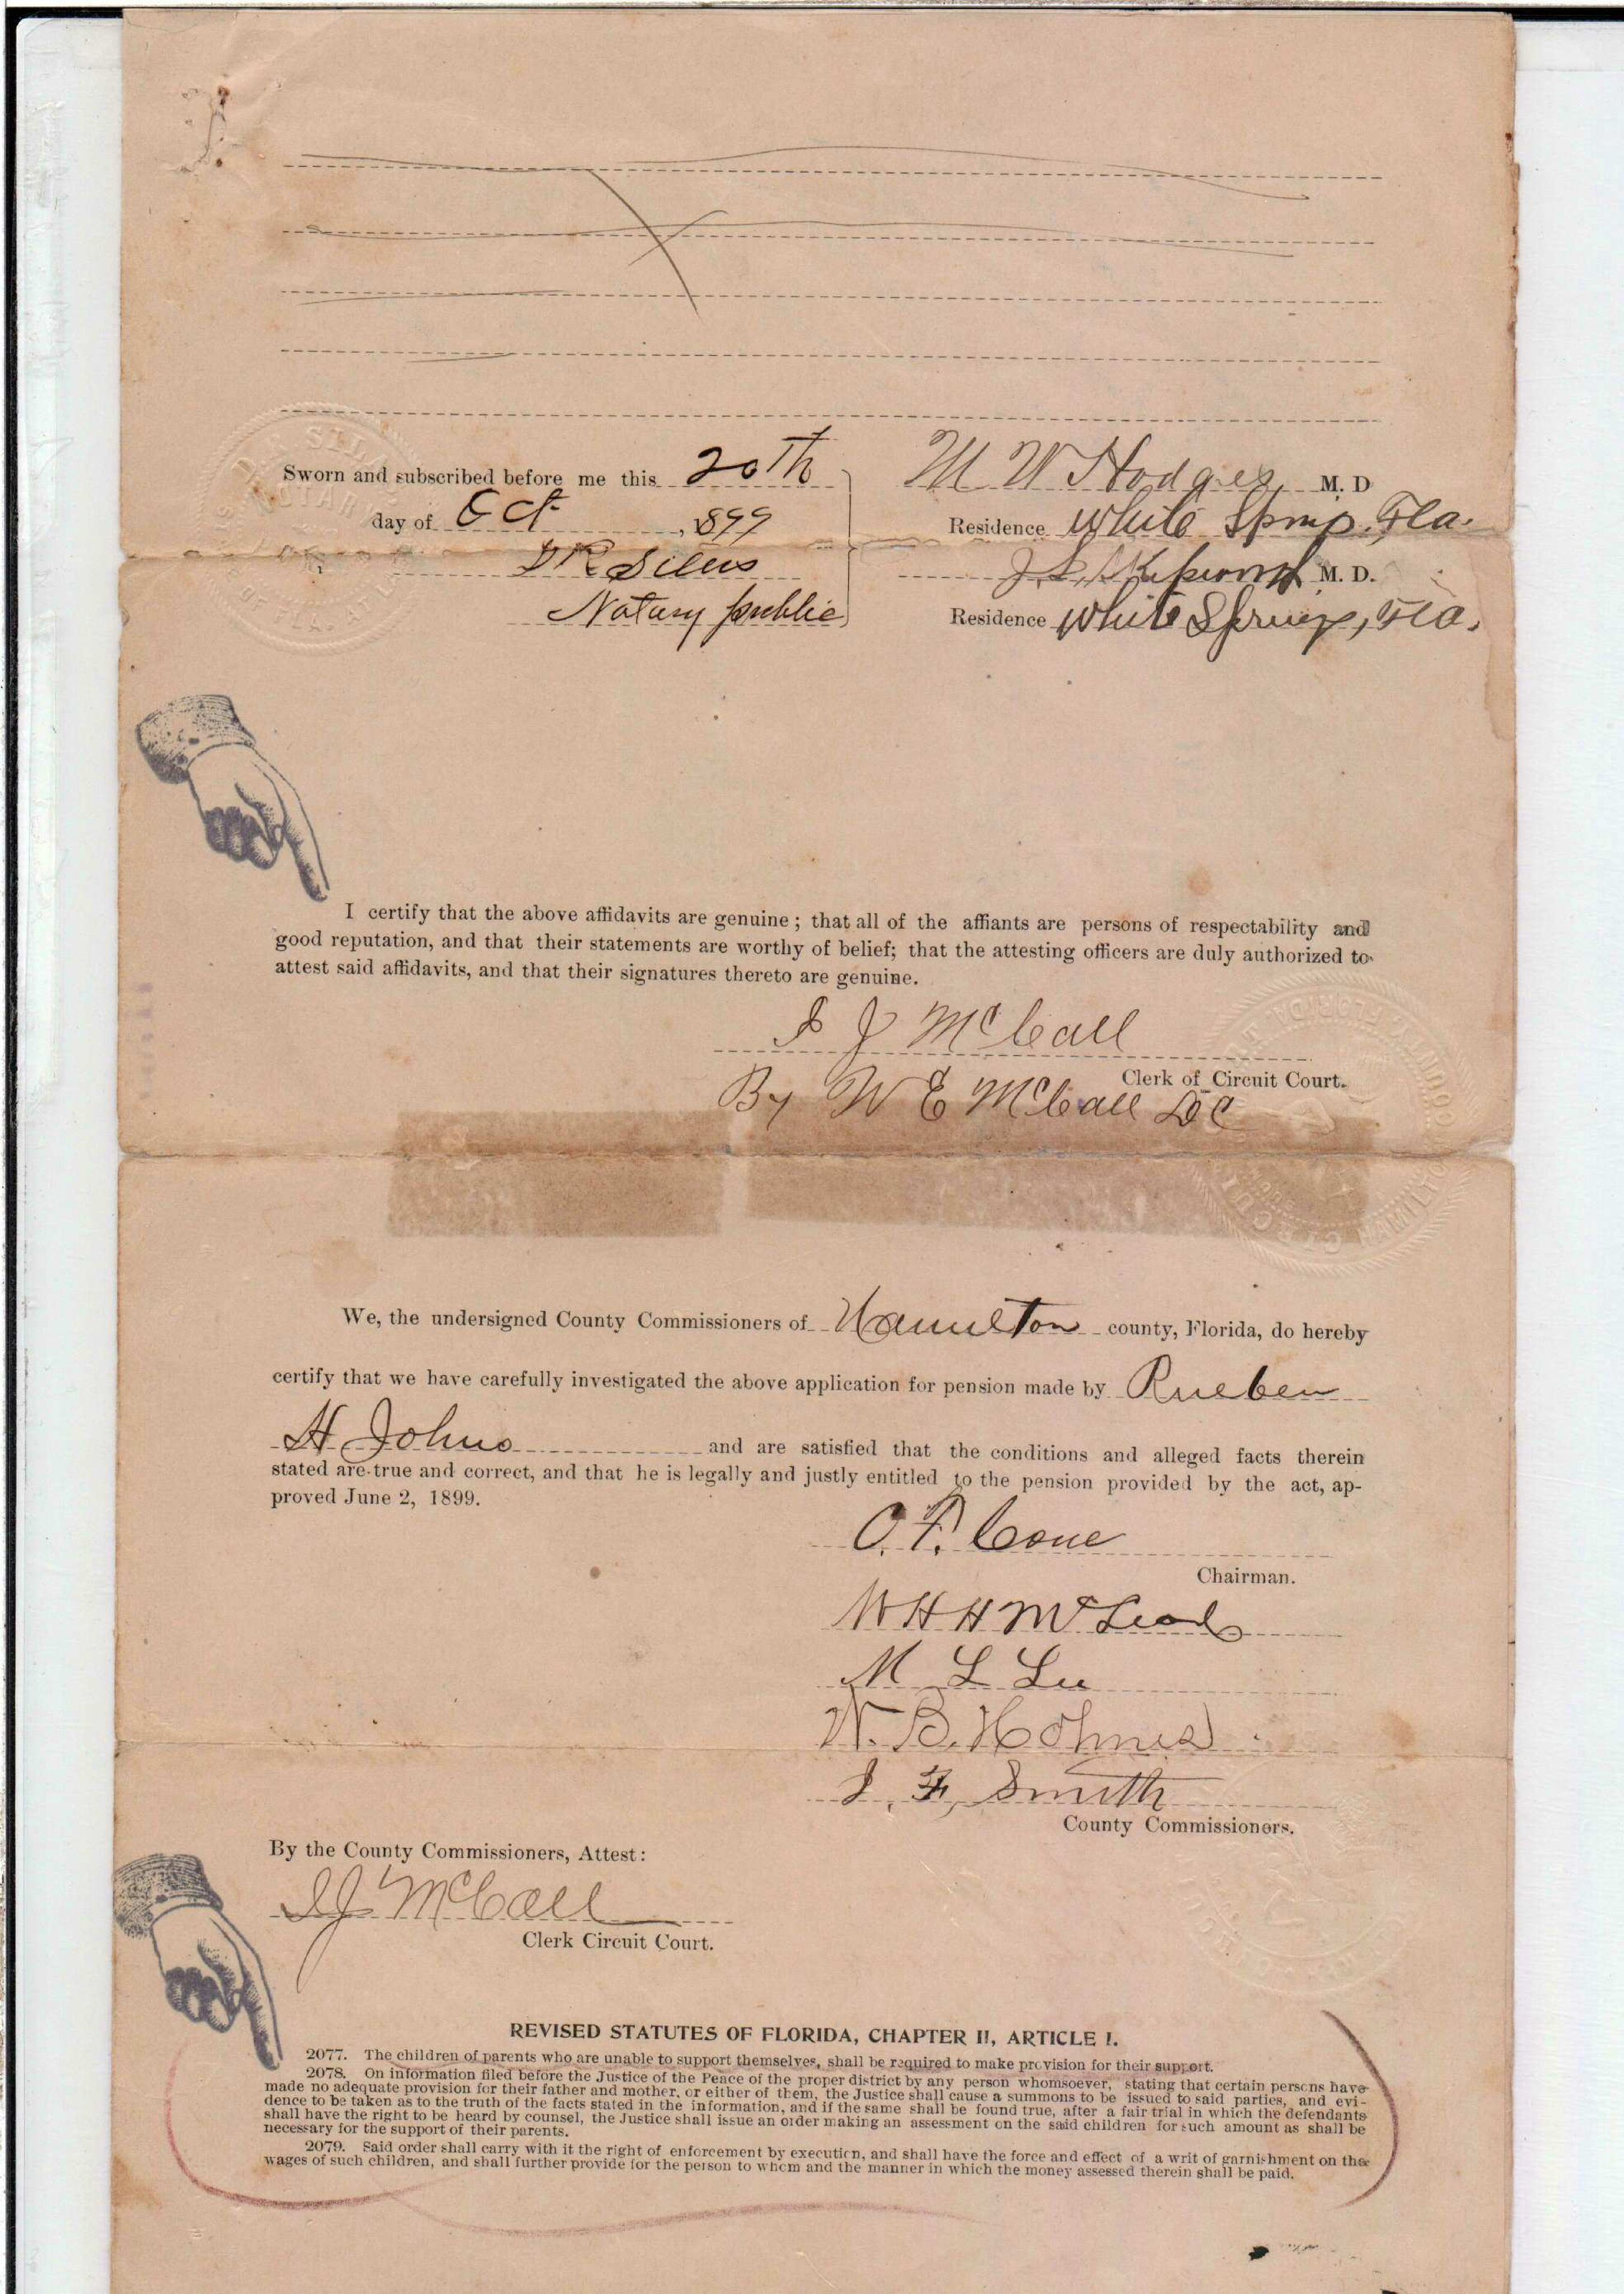 Sworn and subscribed before me this 20th
day of Oct, 1899
Notary public
M W Hodges M. D
Residence White Springs, Fla.
M. D.
Residence White Springs, Fla.
I certify that the above affidavits are genuine; that all of the affiants are persons of respectability and
good reputation, and that their statements are worthy of belief; that the attesting officers are duly authorized to
attest said affidavits, and that their signatures thereto are genuine.
I J McCall
Clerk of Circuit Court.
By W E McCall DC
We, the undersigned County Commissioners of Hamilton county, Florida, do hereby
certify that we have carefully investigated the above application for pension made by Rueben
H Johns and are satisfied that the conditions and alleged facts therein
stated are true and correct, and that he is legally and justly entitled to the pension provided by the act, ap-
proved June 2, 1899.
C. F. Cone
Chairman.
W H H McLeod
M L Lee
W. B. Holmes
J. F. Smith
County Commissioners.
By the County Commissioners, Attest:
I J McCall
Clerk Circuit Court.
REVISED STATUTES OF FLORIDA, CHAPTER II, ARTICLE I.
2077. The children of parents who are unable to support themselves, shall be required to make provision for their support.
2078. On information filed before the Justice of the Peace of the proper district by any person whomsoever, stating that certain persons have
made no adequate provision for their father and mother, or either of them, the Justice shall cause a summons to be issued to said parties, and evi-
dence to be taken as to the truth of the facts stated in the information, and if the same shall be found true, after a fair trial in which the defendants
shall have the right to be heard by counsel, the Justice shall issue an order making an assessment on the said children for such amount as shall be
necessary for the support of their parents.
2079. Said order shall carry with it the right of enforcement by execution, and shall have the force and effect of a writ of garnishment on the
wages of such children, and shall further provide for the person to whom and the manner in which the money assessed therein shall be paid.